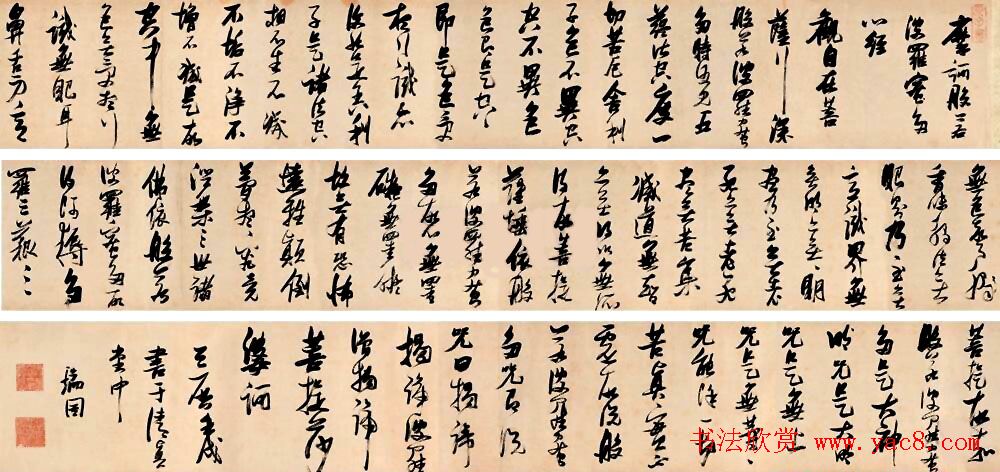 摩訶般若
波羅蜜多
心經
觀自在菩
薩行深
般若波羅蜜
多時照見五
蘊皆空度一
切苦厄舍利
子色不異空
空不異色
色即是空空
即是色受
想行識亦
復如是舍利
子是諸法空
相不生不滅
不垢不淨不
增不減是故
空中無
色無受想行
識無眼耳
鼻舌身意
無色聲香
味觸法無
眼界乃至無
意識界無
無明亦無無明
盡乃至無老
死亦無老死
盡無苦集
滅道無智
亦無得以無所
得故菩提
薩埵依般
若波羅蜜
多故心無罣
礙無罣礙
故無有恐怖
遠離顛倒
夢想究竟
涅槃三世諸
佛依般若
波羅蜜多故
得阿耨多
羅三藐三
菩提故知
般若波羅蜜多
是大神
咒是大明
咒是無上
咒是無等等
咒能除一切
苦真實不
虛故說般
若波羅蜜
多咒即說
咒曰揭諦
揭諦波羅
僧揭諦
菩提薩
婆訶
書于清真
堂中
瑞圖
书法欣赏 www.yac8.com